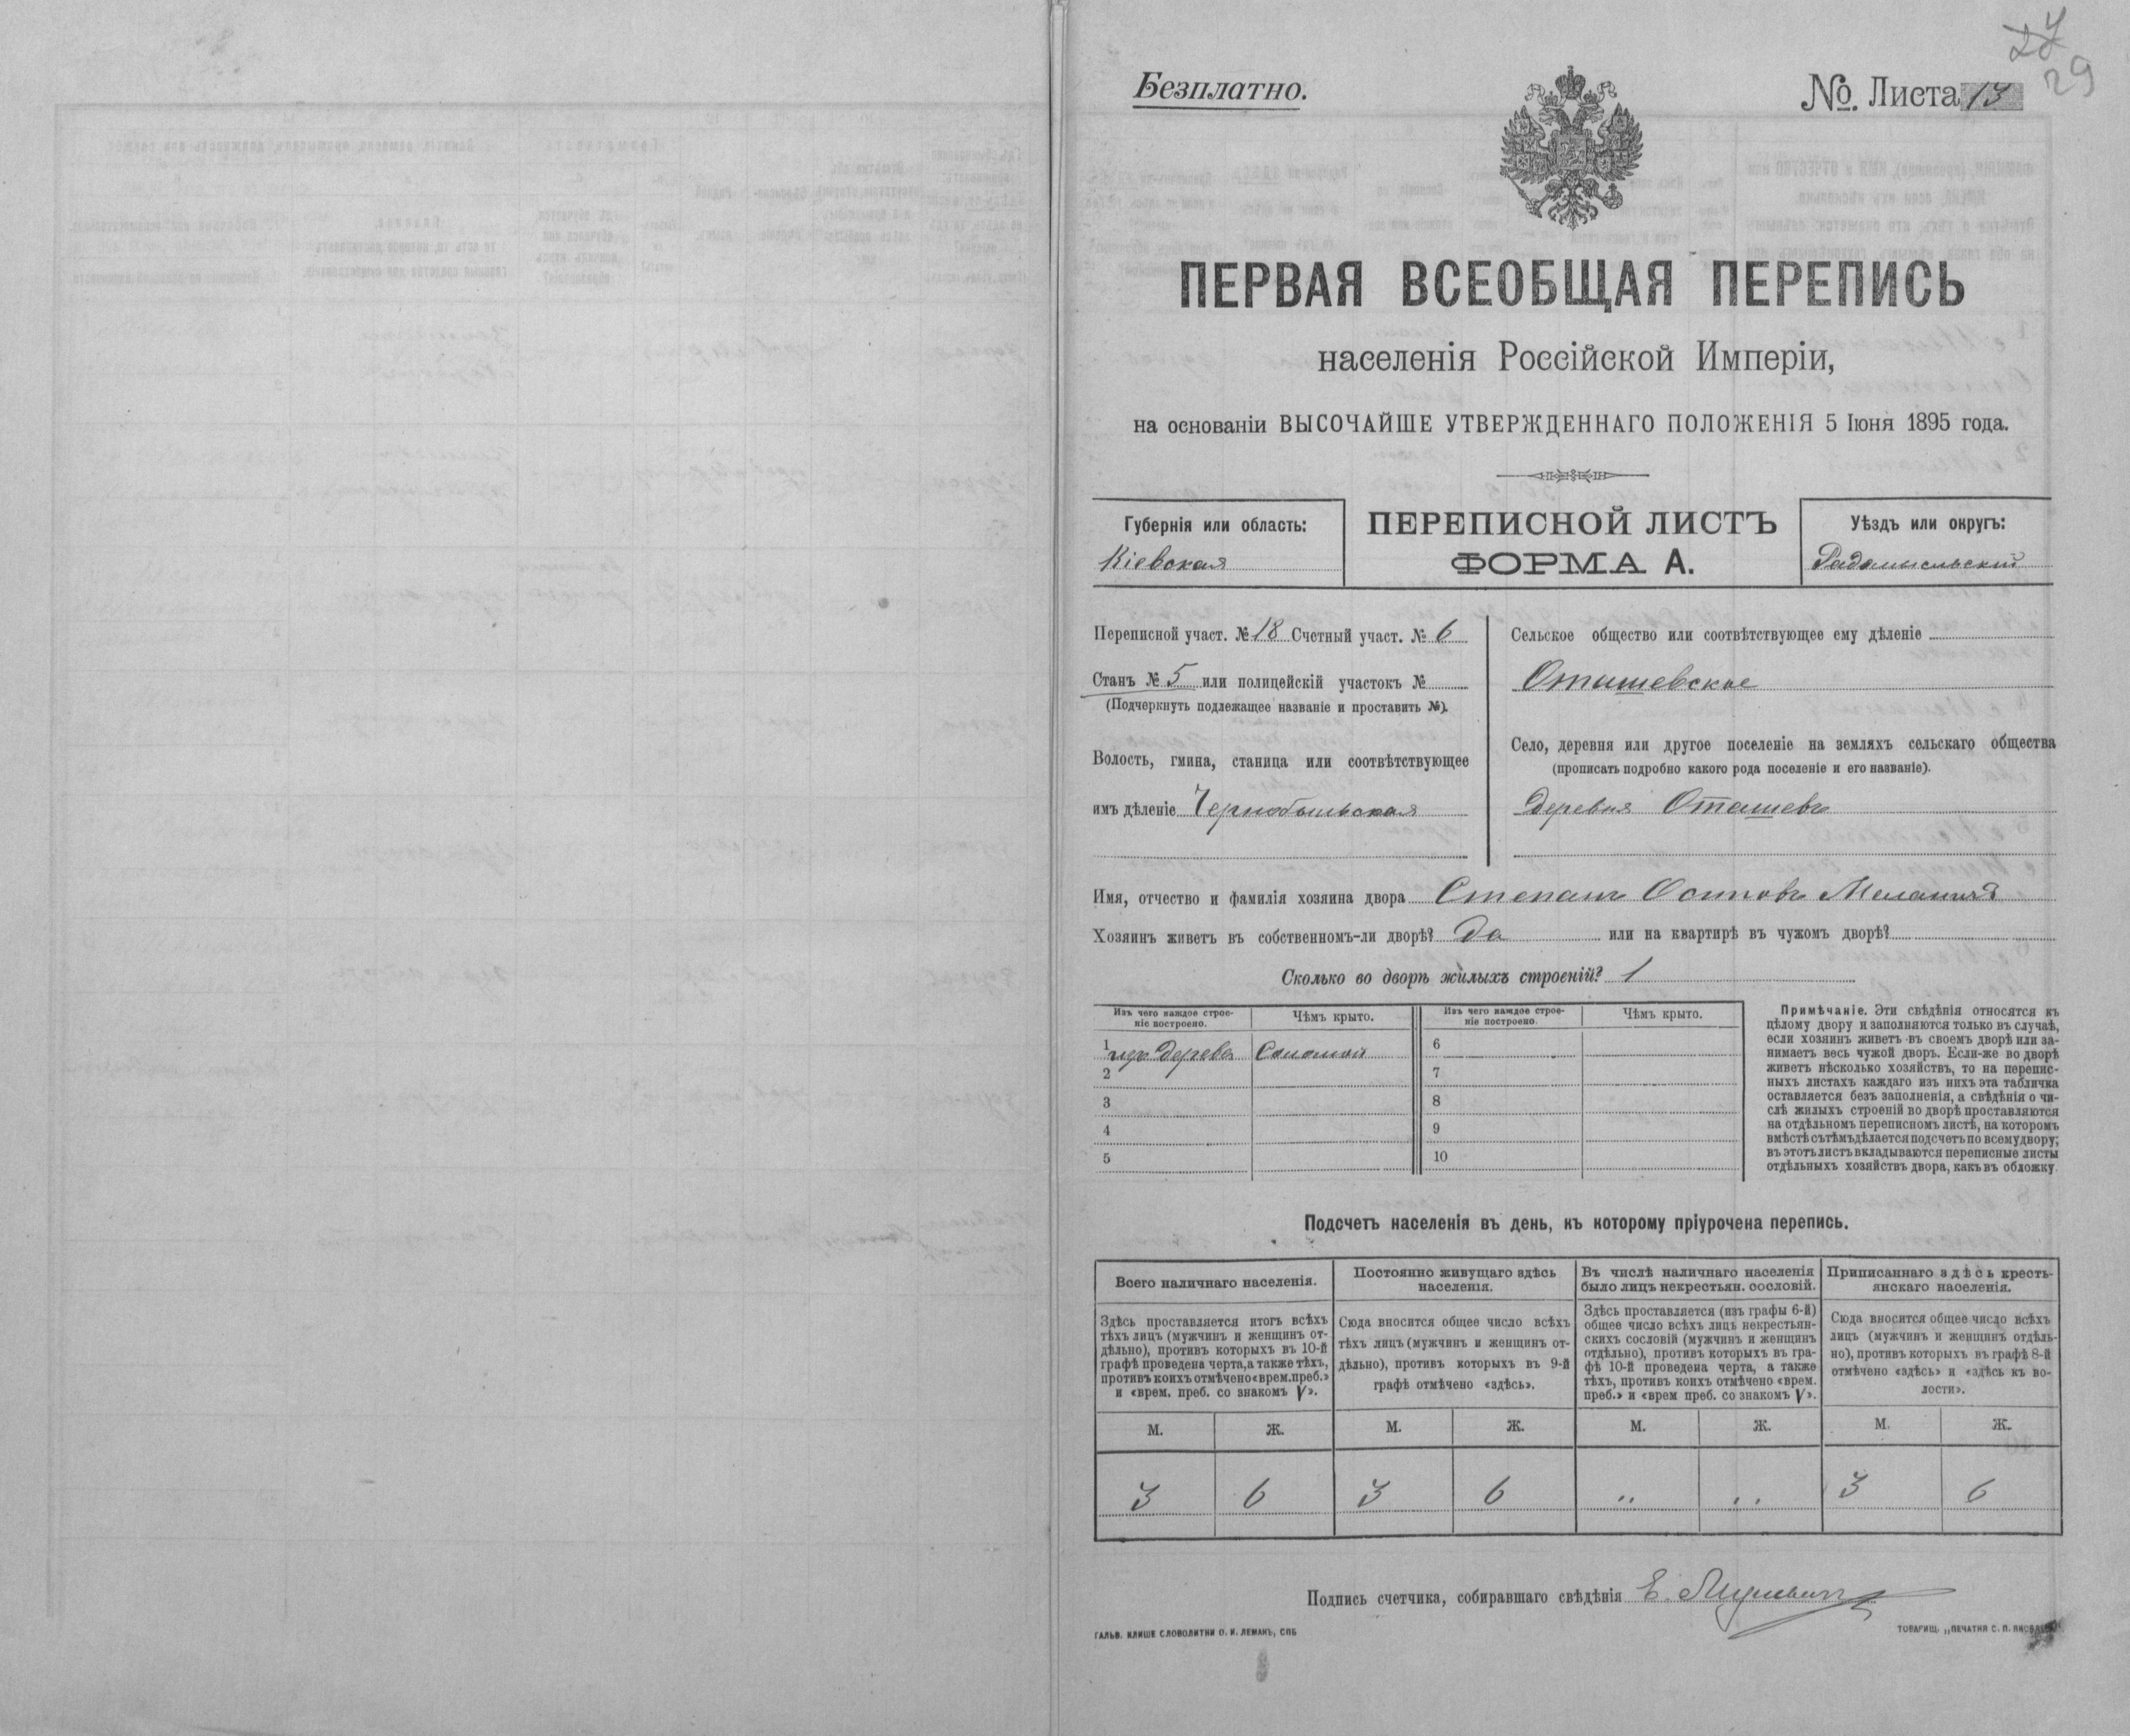 27
29
Безплатно.
№. Листа 13
ПЕРВАЯ ВСЕОБЩАЯ ПЕРЕПИСЬ
населенія Россійской Имперіи,
на основаніи ВЫСОЧАЙШЕ УТВЕРЖДЕННАГО ПОЛОЖЕНІЯ 5 Іюня 1895 года.
Губернія или область:
Кіевская
ПЕРЕПИСНОЙ ЛИСТЪ
ФОРМА А.
Уѣздъ или округъ:
Радомысльскій
Переписной участ. № 18 Счетный участ. № 6
Станъ № 5 или полицейскій участокъ №
(Подчеркнуть подлежащее названіе и проставить №).
Волость, гмина, станица или соотвѣтствующее
имъ дѣленіе Чернобыльская
Сельское общество или соотвѣтствующее ему дѣленіе
Оташевское
Село, деревня или другое поселеніе на земляхъ сельскаго общества
(прописать подробно какого рода поселеніе и его названіе).
Деревня Оташевъ
Имя, отчество и фамилія хозяина двора Степанъ Осиповъ
Хозяинъ живетъ въ собственномъ-ли дворѣ? Да или на квартирѣ въ чужомъ дворѣ?
Сколько во дворѣ жилыхъ строеній? 1
Изъ чего каждое строе-
ніе построено.
Чѣмъ крыто.
Изъ чего каждое строе-
ніе построено.
Чѣмъ крыто.
1 изъ дерева Соломой
2
3
4
5
6
7
8
9
10
Примѣчаніе. Эти свѣдѣнія относятся къ
цѣлому двору и заполняются только въ случаѣ,
если хозяинъ живетъ въ своемъ дворѣ или за-
нимаетъ весь чужой дворъ. Если-же во дворѣ
живетъ нѣсколько хозяйствъ, то на перепис-
ныхъ листахъ каждаго изъ нихъ эта табличка
оставляется безъ заполненія, а свѣдѣнія о чи-
слѣ жилыхъ строеній во дворѣ проставляются
на отдѣльномъ переписномъ листѣ, на которомъ
вмѣстѣ съ тѣмъ дѣлается подсчетъ по всему двору;
въ этотъ листъ вкладываются переписные листы
отдѣльныхъ хозяйствъ двора, какъ въ обложку.
Подсчетъ населенія въ день, къ которому пріурочена перепись.
Всего наличнаго населенія.
Здѣсь проставляется итогъ всѣхъ
тѣхъ лицъ (мужчинъ и женщинъ от-
дѣльно), противъ которыхъ въ 10-й
графѣ проведена черта, а также тѣхъ,
противъ коихъ отмѣчено «врем. преб.»
и «врем. преб. со знакомъ V».
Постоянно живущаго здѣсь
населенія.
Сюда вносится общее число всѣхъ
тѣхъ лицъ (мужчинъ и женщинъ от-
дѣльно), противъ которыхъ въ 9-й
графѣ отмѣчено «здѣсь».
Въ числѣ наличнаго населенія
было лицъ некрестьян. сословій.
Здѣсь проставляется (изъ графы 6-й)
общее число всѣхъ лицъ некрестьян-
скихъ сословій (мужчинъ и женщинъ
отдѣльно), противъ которыхъ въ гра-
фѣ 10-й проведена черта, а также
тѣхъ, противъ коихъ отмѣчено «врем.
преб.» и «врем преб. со знакомъ V».
Приписаннаго здѣсь кресть-
янскаго населенія.
Сюда вносится общее число всѣхъ
лицъ (мужчинъ и женщинъ отдѣль-
но), противъ которыхъ въ графѣ 8-й
отмѣчено «здѣсь» и «здѣсь къ во-
лости».
М. Ж. М. Ж. М. Ж. М. Ж.
3 6 3 6 „ „ 3 6
Подпись счетчика, собиравшаго свѣдѣнія Е.
ГАЛЬВ. КЛИШЕ СЛОВОЛИТНИ О. И. ЛЕМАНЪ, СПБ
ТОВАРИЩ. „ПЕЧАТНЯ С. П.